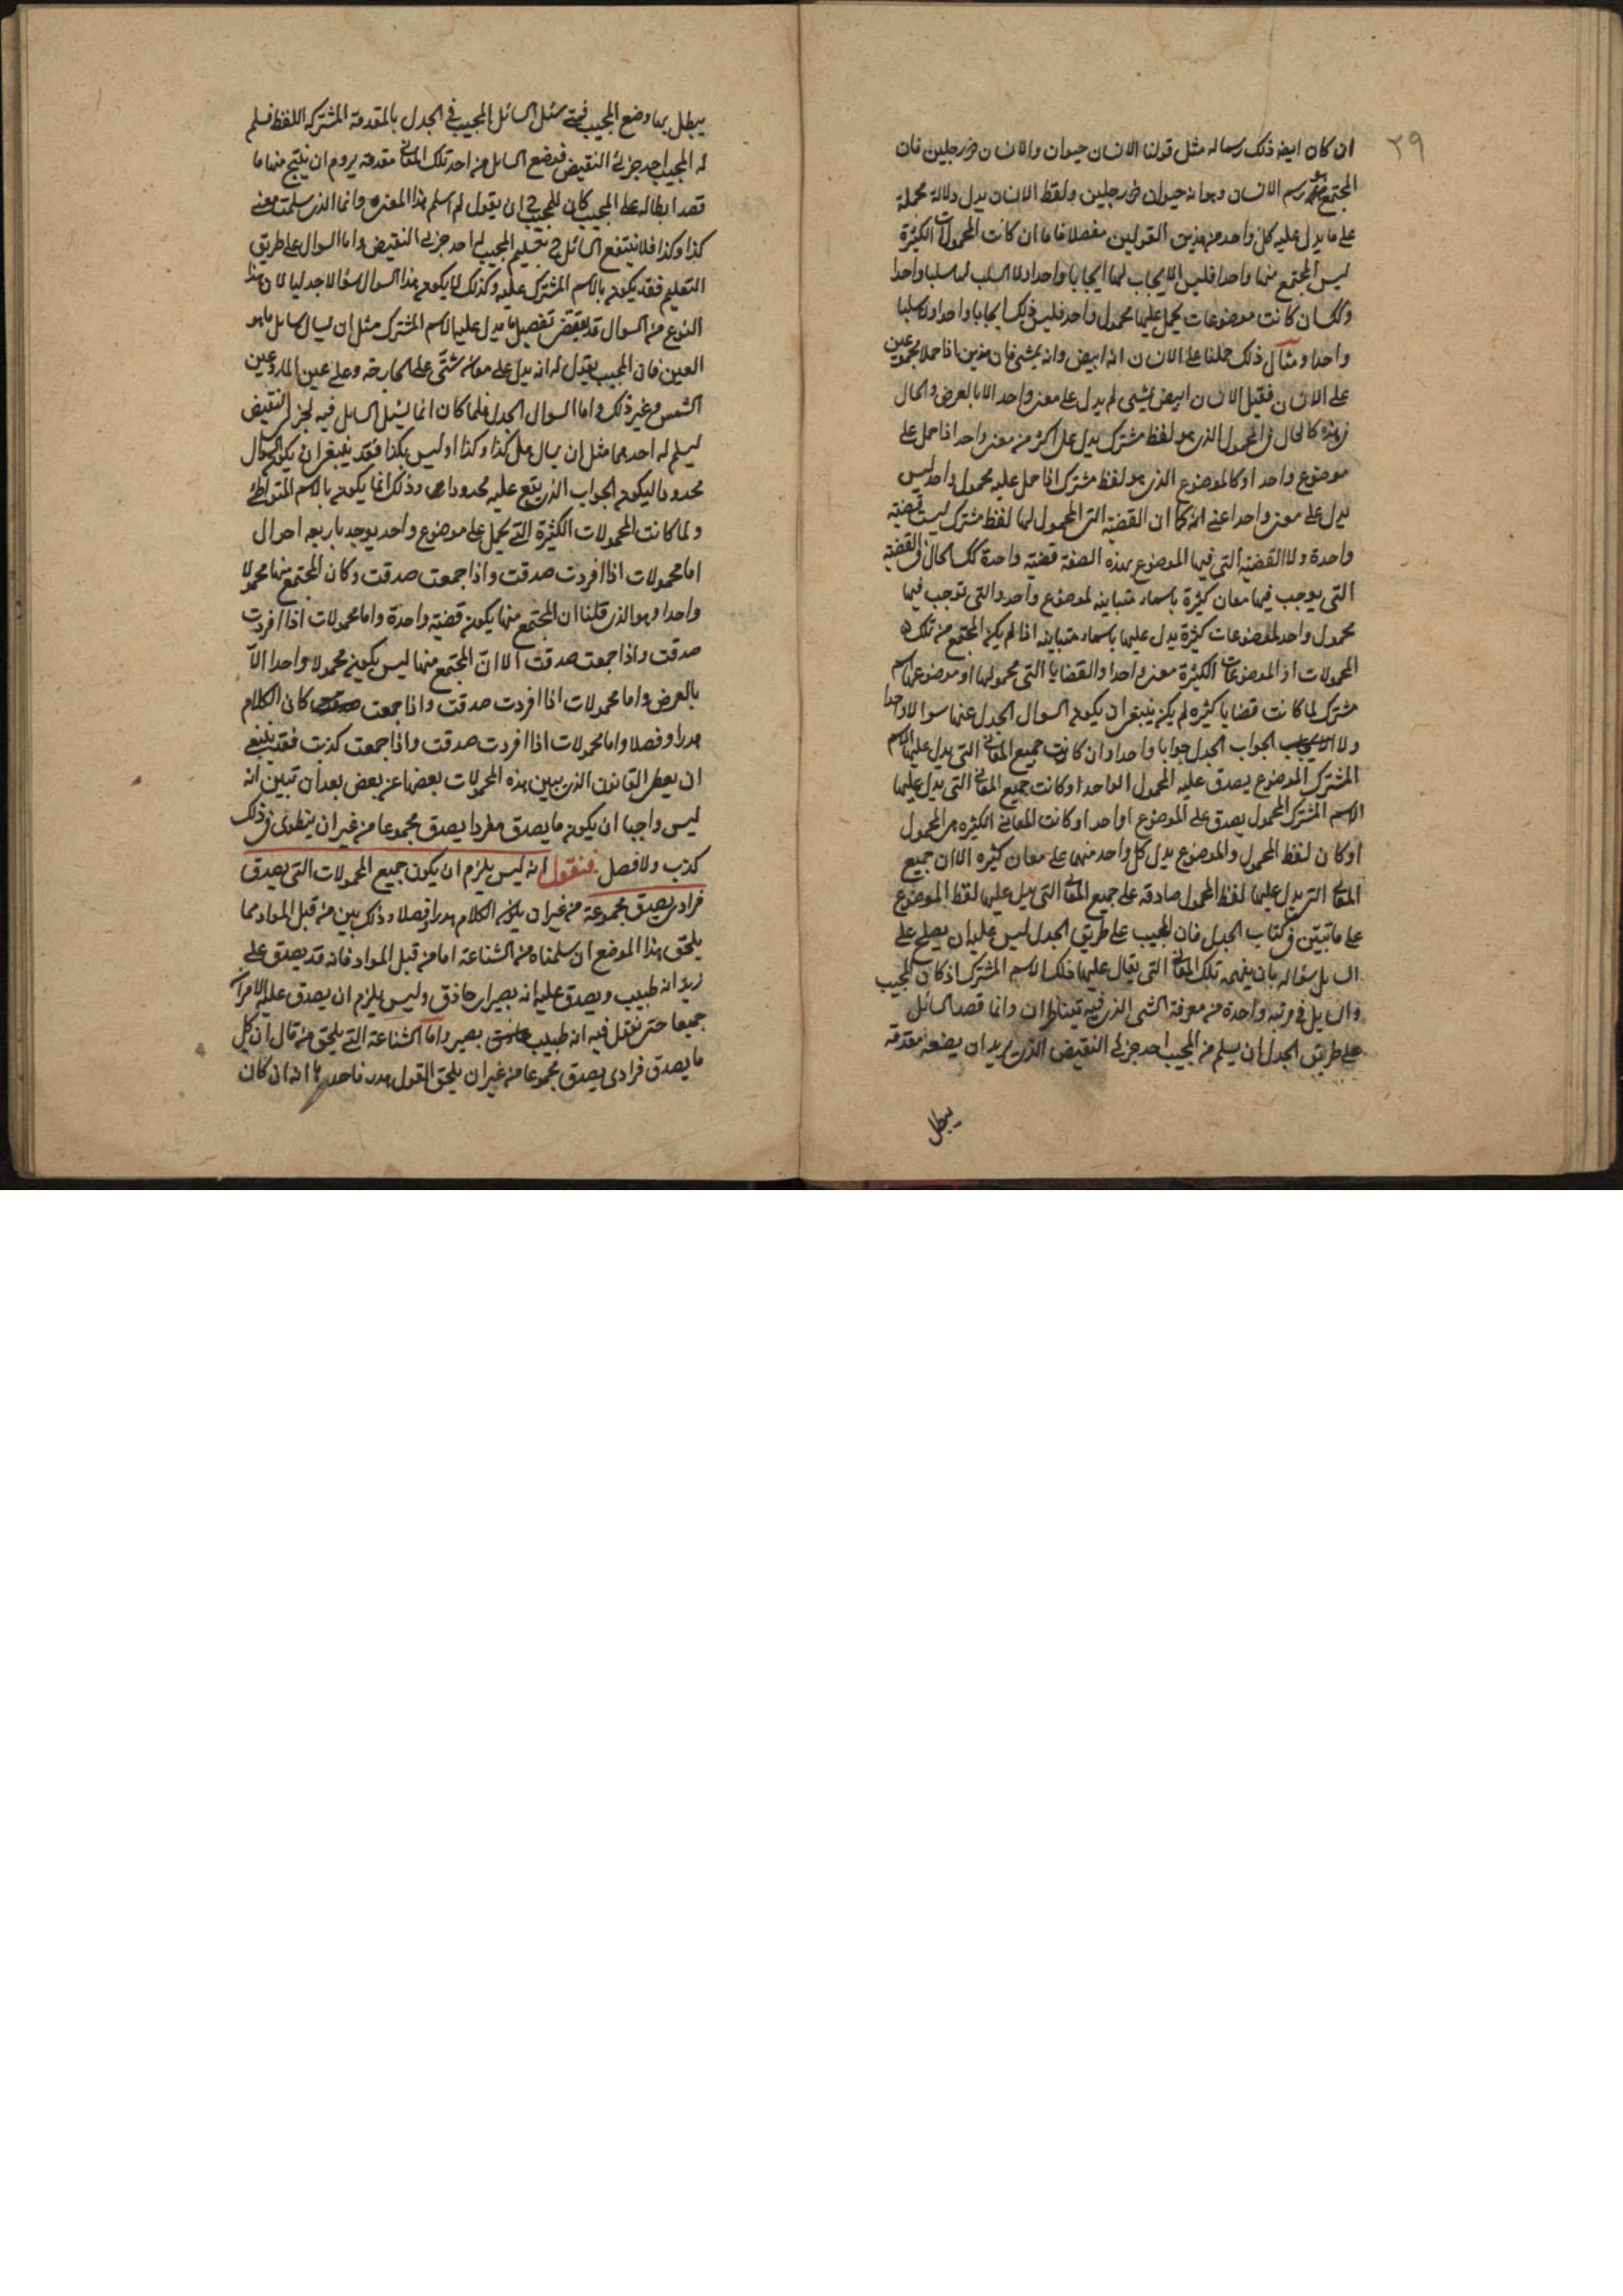 ٣٩
ان كان ايضا ذلك رسما له مثل قولنا الانسان حيوان والانسان ذو رجلين فان
المجتمع هو رسم الانسان وهو انه حيوان ذو رجلين ولفظ الانسان يدل دلالة مجملة
على ما يدل عليه كل واحد من هذين القولين مفصلا فاما ان كانت المحمولات الكثيرة
ليس المجتمع منها واحدا فليس الايجاب لها ايجابا واحدا ولا السلب لها سلبا واحدا
وكك ان كانت موضوعات يحمل عليها محمول واحد فليس ذلك ايجابا واحدا ولا سلبا
واحدا ومثال ذلك حملنا على الانسان انه ابيض وانه يمشى فان هذين اذا حملا مجموعين
على الانسان فقيل الانسان ابيض يمشى لم يدل على معنى واحد الا بالعرض والحال
فى هذه كالحال فى المحمول الذى هو لفظ مشترك يدل على اكثر من معنى واحد اذا حمل على
موضوع واحد او كالموضوع الذى هو لفظ مشترك اذا حمل عليه محمول واحد ليس
يدل على معنى واحد اعنى انه كما ان القضية التى المحمول لها لفظ مشترك ليست قضية
واحدة ولا القضية التى فيها الموضوع بهذه الصفة قضية واحدة كك الحال فى القضية
التى يوجب فيها معان كثيرة باسماء متباينة لموضوع واحد والتى توجب فيها
محمول واحد لموضوعات كثيرة يدل عليها باسماء متباينة اذا لم يكن المجتمع من تلك
المحمولات او الموضوعات الكثيرة معنى واحدا والقضايا التى محمولها او موضوعها اسم
مشترك لما كانت قضايا كثيرة لم يكن ينبغى ان يكون السوال الجدلى عنها سوالا واحدا
ولا الجواب الجدلى جوابا واحدا وان كانت جميع المعانى التى يدل عليها الاسم
المشترك الموضوع يصدق عليه المحمول الواحد او كانت جميع المعانى التى يدل عليها
الاسم المشترك المحمول يصدق على الموضوع الواحد او كانت المعانى الكثيرة هى المحمول
او كان لفظ المحمول والموضوع يدل كل واحد منهما على معان كثيرة الا ان جميع
المعانى التى يدل عليها لفظ المحمول صادقة على جميع المعانى التى يدل عليها لفظ الموضوع
على ما تبين فى كتاب الجدل فان المجيب على طريق الجدل ليس عليه ان يصلح على
السايل سؤاله بان يفهمه تلك المعانى التى يقال عليها ذلك الاسم المشترك اذ كان المجيب
والسايل فى مرتبة واحدة من معرفة الشى الذى فيه يتناظران وانما قصد السائل
على طريق الجدل ان يسلم من المجيب احد جزئى النقيض الذى يريد ان يضعه مقدمة
يبطل
يبطل بها وضع المجيب فمتى سئل السائل المجيب فى الجدل بالمقدمة المشتركة اللفظ فسلم
له المجيب احد جزئى النقيض فوضع السايل من احد تلك المعانى مقدمة يروم ان ينتج منها ما
قصد ابطاله على المجيب كان للمجيب ح ان يقول لم اسلم هذا المعنى وانما الذى سلمت معنى
كذا وكذا فلا ينتفع السائل ح بتسليم المجيب له احد جزئى النقيض واما السوال على طريق
التعليم فقد يكون بالاسم المشترك عليه وكذلك لا يكون هذا السوال سؤالا جدليا لان هذا
النوع من السوال قد يقتضى تفصيل ما يدل عليه الاسم المشترك مثل ان يسال سايل ما هو
العين فان المجيب يقول له انه يدل على معان شتى على الجارحة وعلى عين الماء وعين
الشمس وغير ذلك واما السوال الجدلى فلما كان انما يسئل السايل فيه لجزئى النقيض
ليسلم له احدهما مثل ان يسال هل كذا وكذا او ليس بكذا فقد ينبغى ان يكون السوال
محدودا ليكون الجواب الذى يقع عليه محدودا وذلك انما يكون بالاسم المتواطئ
ولما كانت المحمولات الكثيرة التى تحمل على موضوع واحد يوجد باربعة احوال
اما محمولات اذا افردت صدقت واذا جمعت صدقت وكان المجتمع منها محمولا
واحدا وهو الذى قلنا ان المجتمع منها يكون قضية واحدة واما محمولات اذا افردت
صدقت واذا جمعت صدقت الا ان المجتمع منها ليس يكون محمولا واحدا الا
بالعرض واما محمولات اذا افردت صدقت واذا جمعت كان الكلام
هدرا وفضلا واما محمولات اذا افردت صدقت واذا جمعت كذبت فقد ينبغى
ان يعطى القانون الذى يبين هذه المحمولات بعضها عن بعض بعد ان تبين انه
ليس واجبا ان يكون ما يصدق مفردا يصدق مجموعا من غير ان ينطوى فى ذلك
كذب ولا فضل فنقول انه ليس يلزم ان يكون جميع المحمولات التى يصدق
فرادى يصدق مجموعة من غير ان يكون الكلام هدرا وفضلا وذلك بين من قبل المواد مما
يلحق هذا الموضع ان سلمناه من الشناعة اما من قبل المواد فانه قد يصدق على
زيد انه طبيب ويصدق عليه انه بصير اى حاذق وليس يلزم ان يصدق عليه الامران
جميعا حتى نقول فيه انه طبيب بصير واما الشناعة التى يلحق من قال ان كل
ما يصدق فرادى يصدق مجموعا من غير ان يلحق القول هدر فاحدها انه ان كان